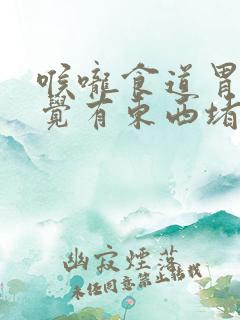 喉嚨食道胃
覺有東西堵
幽寂煙落
未經同意禁止轉載